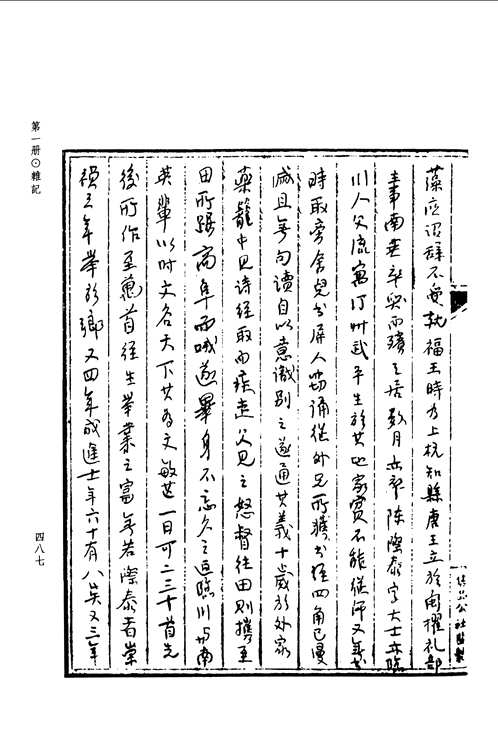 藻應詔辭不受就福王時乃上杭知縣唐王立於閩擢礼部
主事南英卒與而殯之居数月亦卒陈際泰字大士亦臨
川人父流寓汀州武平生於其地家貧不能從師又無书
時取旁舍兒书屏人窃诵從外兄所獲书经四角已漫
滅且無句读自以意識别之遂通其義十歲於外家
藥籠中见诗经取而疾走父见之怒督往田則攜至
田所踞高阜而哦遂畢身不忘久之返臨川与南
英輩以时文名天下其為文敏甚一日可二三十首先
後所作至萬首经生举業之富無若際泰者崇
禎三年舉於鄉又四年成進士年六十有八矣又三年
第一册⊙雜記
四八七